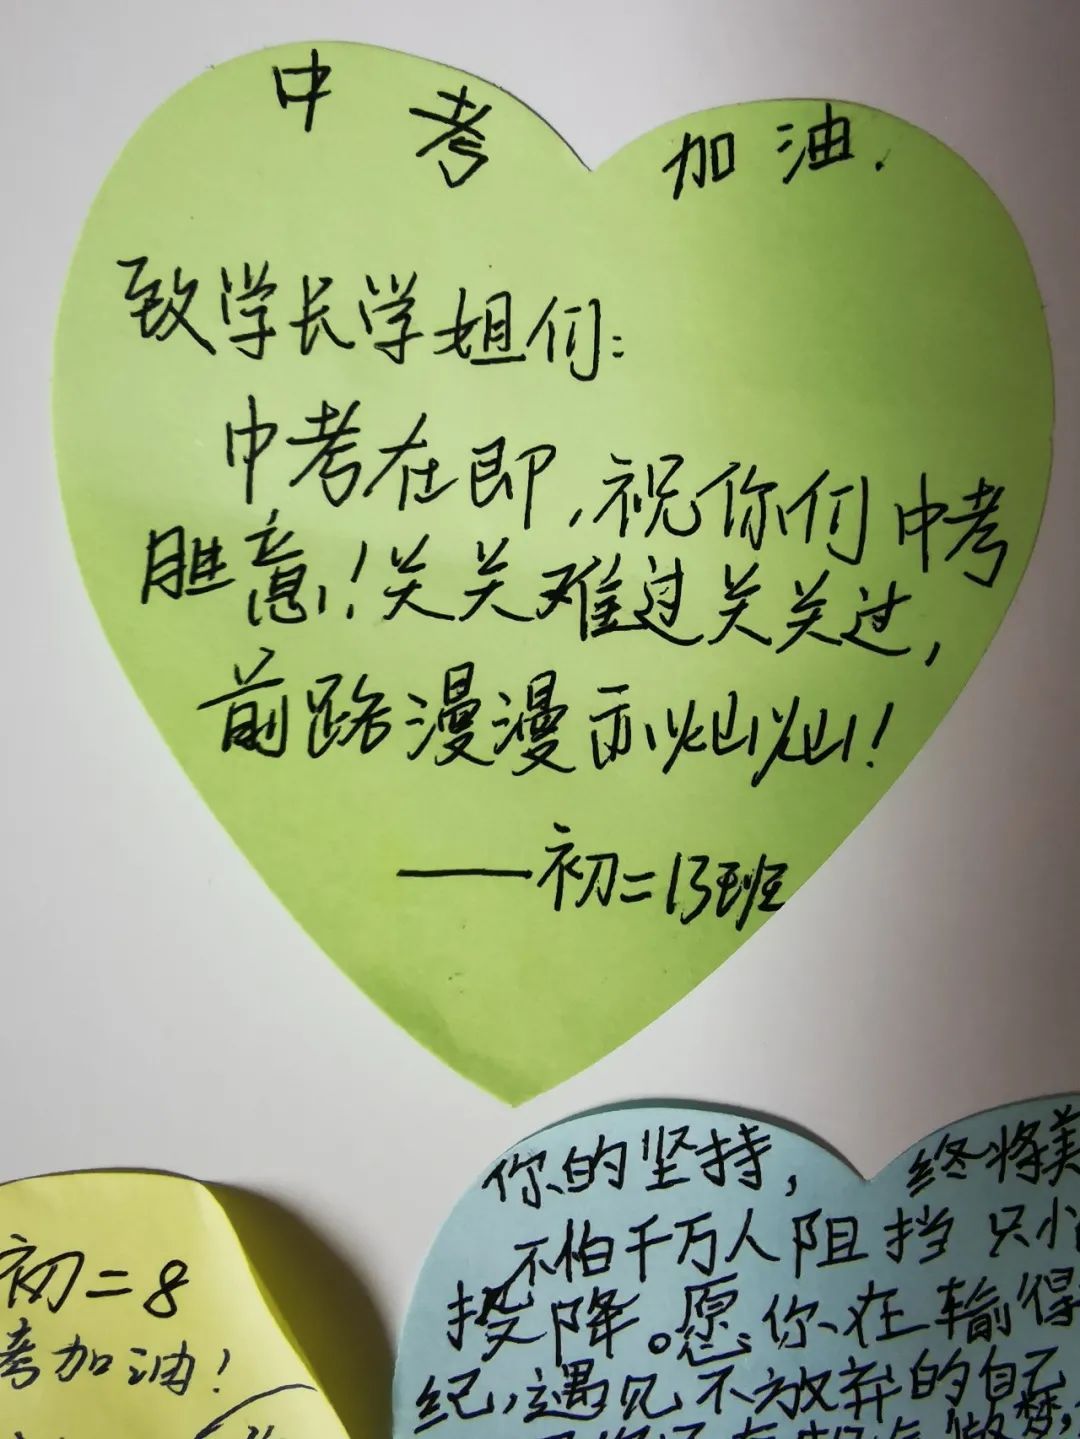 中考 加油.
致学长学姐们:
中考在即,祝你们中考
胜意!关关难过关关过,
前路漫漫亦灿灿!
——初二13班
你的坚持, 终将美
不怕千万人阻挡 只怕
投降。愿你在输得
纪,遇见不放弃的自己
初二8
考加油!